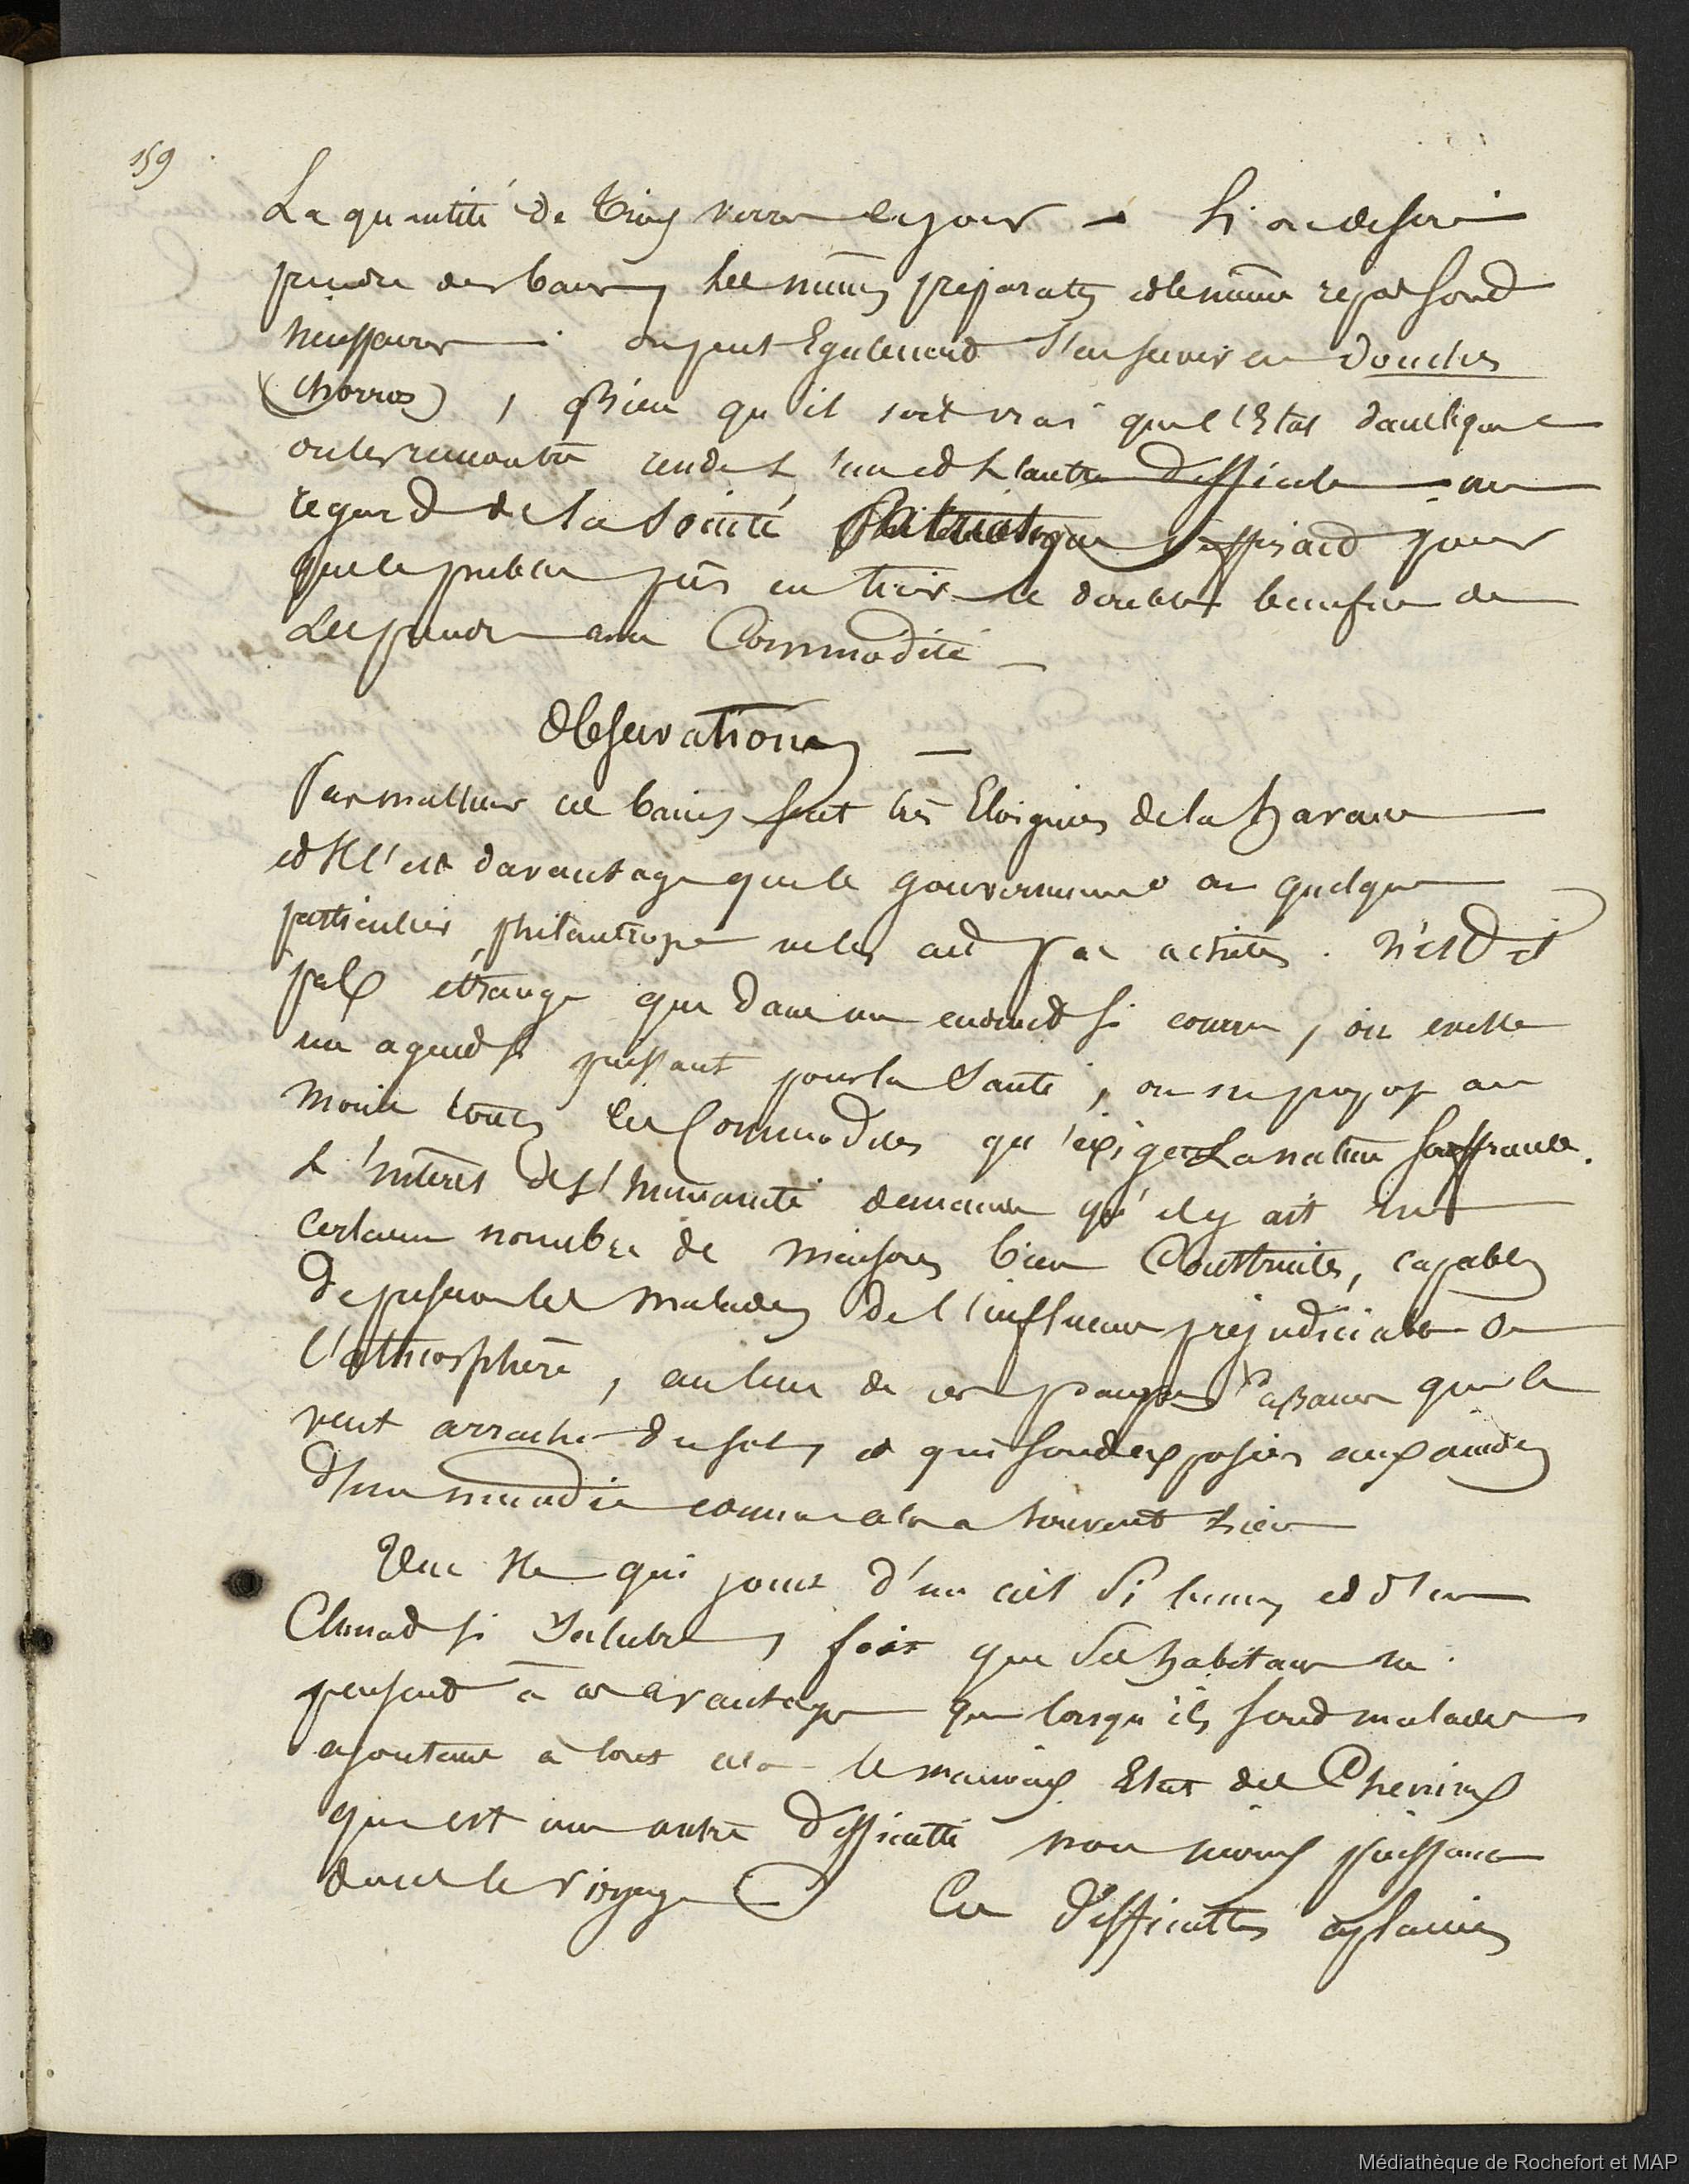 159
La quantité de trois verres le jour — Si on desire
prendre des bains les mêmes preparatifs et le même repas sont
necessaires. on peut Egalement s'en servir en douches
(chorros), Bien qu'il soit vrai que l'Etat dans lequel
on les rencontre rende l'un et l'autre difficile au
regard de la Société pour
que le public pût en tirer le double benefice de
les prendre avec Commodité —
Observations —
Par malheur ces bains sont très Eloignés de la havane
et il l'est davantage que le gouvernement ou quelque
particulier philantrope ne les ait pas achetés. N'est il
pas étrange que dans un endroit si connu, où existe
un agent si puissant pour la Santé, on ne propose au
moins toutes les Commodités qu'exige la nature souffrante.
L'intérêt de l'humanité demande qu'il y ait un
certain nombre de maisons bien Construites, capables
de préserver les malades de l'influence préjudiciable de
l'atmosphère, au lieu de ces pauvres cabanes que le
vent arrache du sol, et qui sont exposées aux
d'un incendie comme cela a souvent lieu
Une Ile qui jouit d'un ciel si et d'un
Climat si Salubre, fait que Ses habitans ne
pensent à ces avantages que lorsqu'ils sont malades
ajoutons à tout cela le mauvais Etat des Chemins
qui est une autre difficulté non moins puissante
dans le voyage Ces difficultés applanies
Médiathèque de Rochefort et MAP